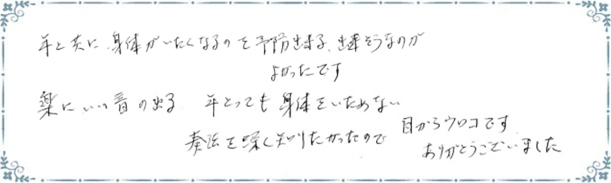 年と共に 身体がいたくなるのを予防出来る、出来そうなのが
よかったです
楽にいい音の出る 年とっても 身体をいためない
奏法を深く知りたかったので 目からウロコです
ありがとうございました